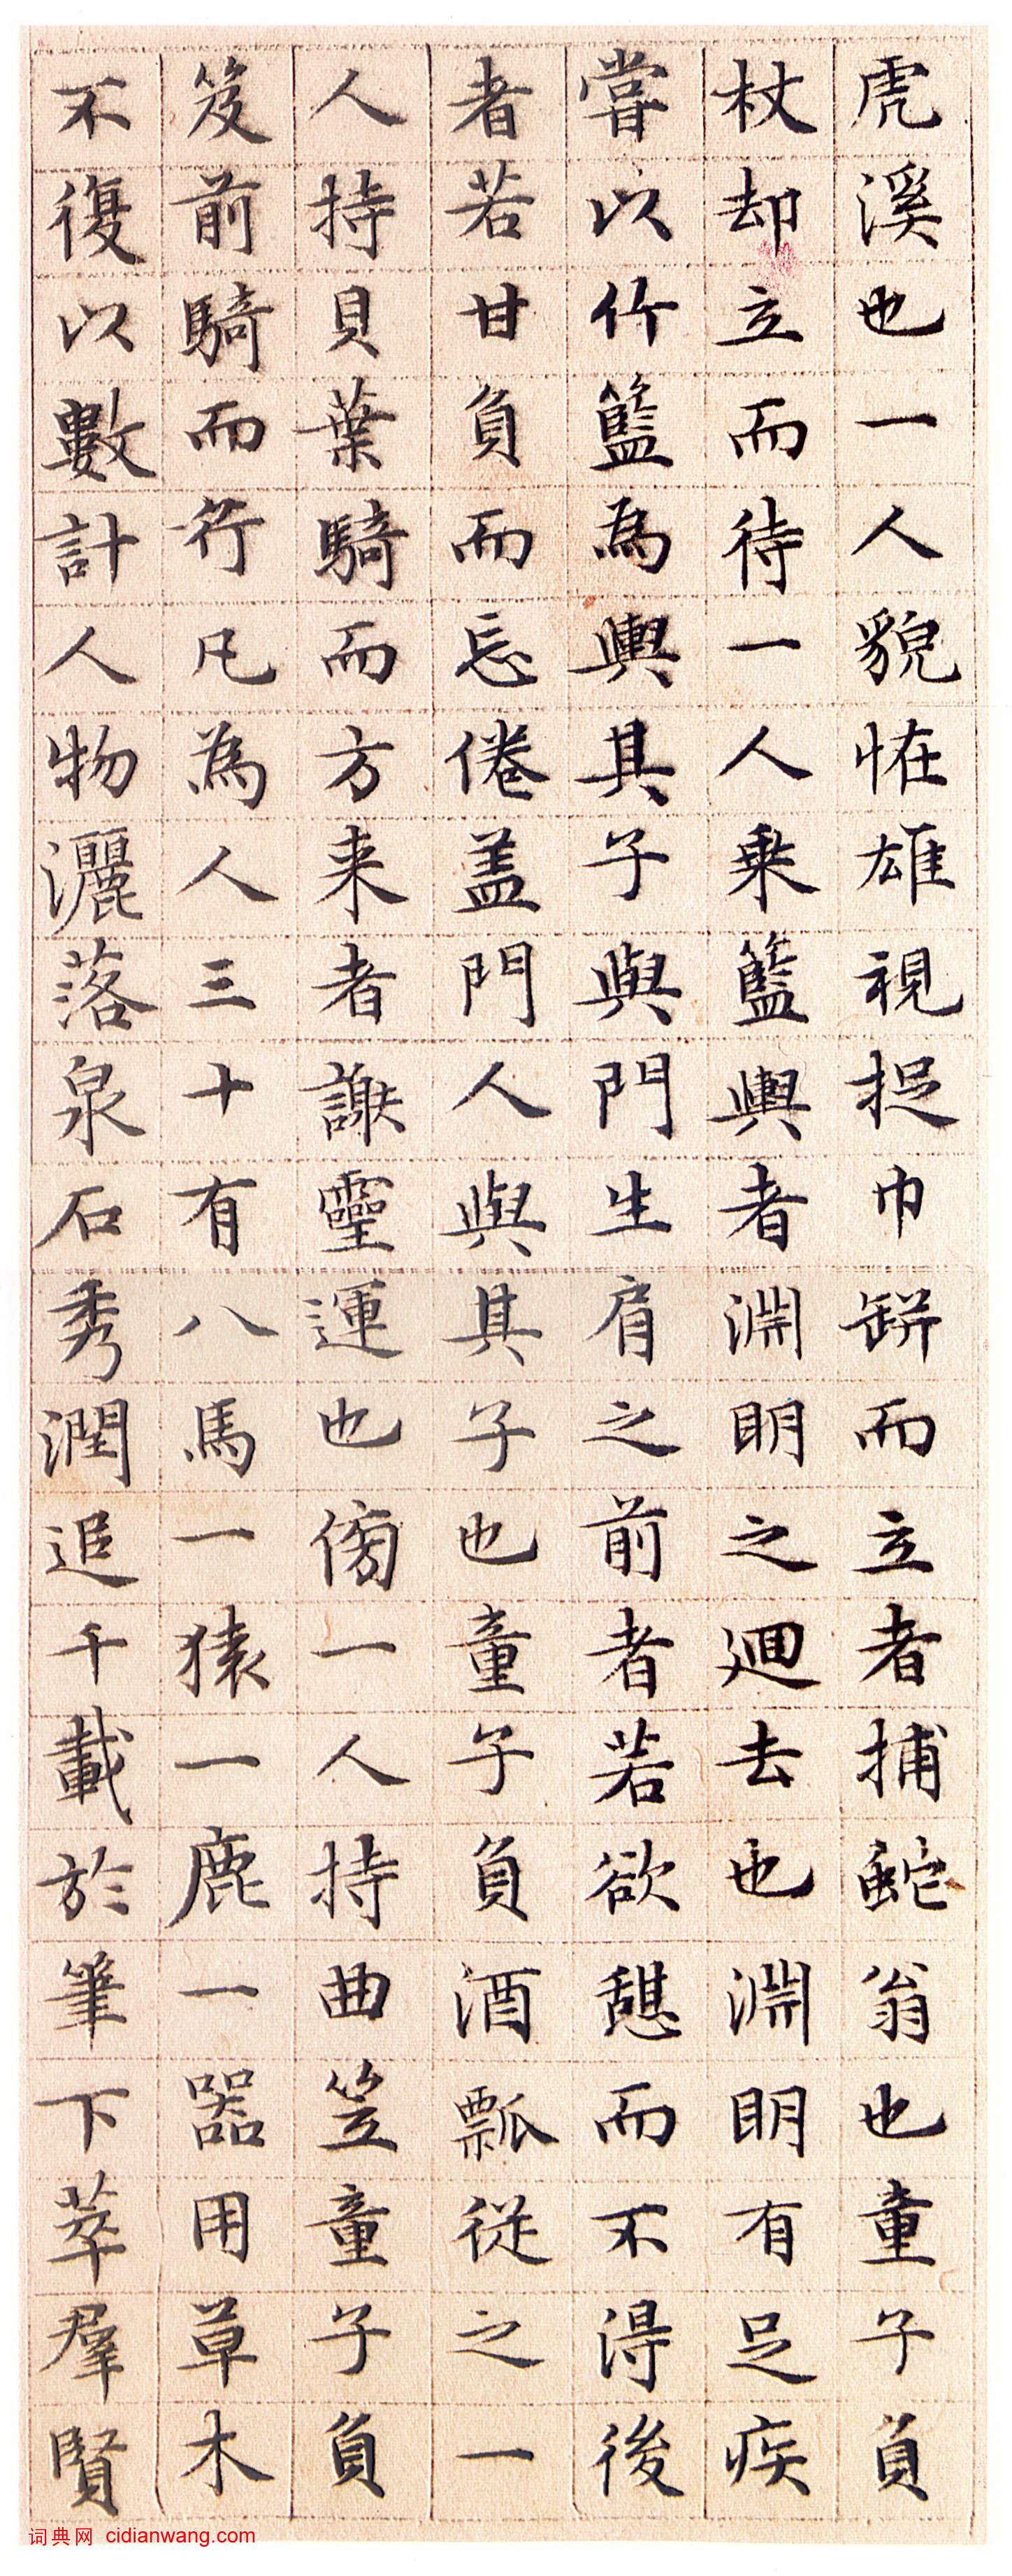 虎溪也一人貌恠雄視捉巾缾而立者捕蛇翁也童子負
杖却立而待一人乗籃輿者淵明之迴去也淵明有足疾
嘗以竹籃為輿其子與門生肩之前者若欲憇而不得後
者若甘負而忘倦盖門人與其子也童子負酒瓢從之一
人持貝葉騎而方来者謝靈運也傍一人持曲笠童子負
笈前騎而行凡為人三十有八馬一猿一鹿一器用草木
不復以數計人物灑落泉石秀潤追千載於筆下萃羣賢
词典网 cidianwang.com